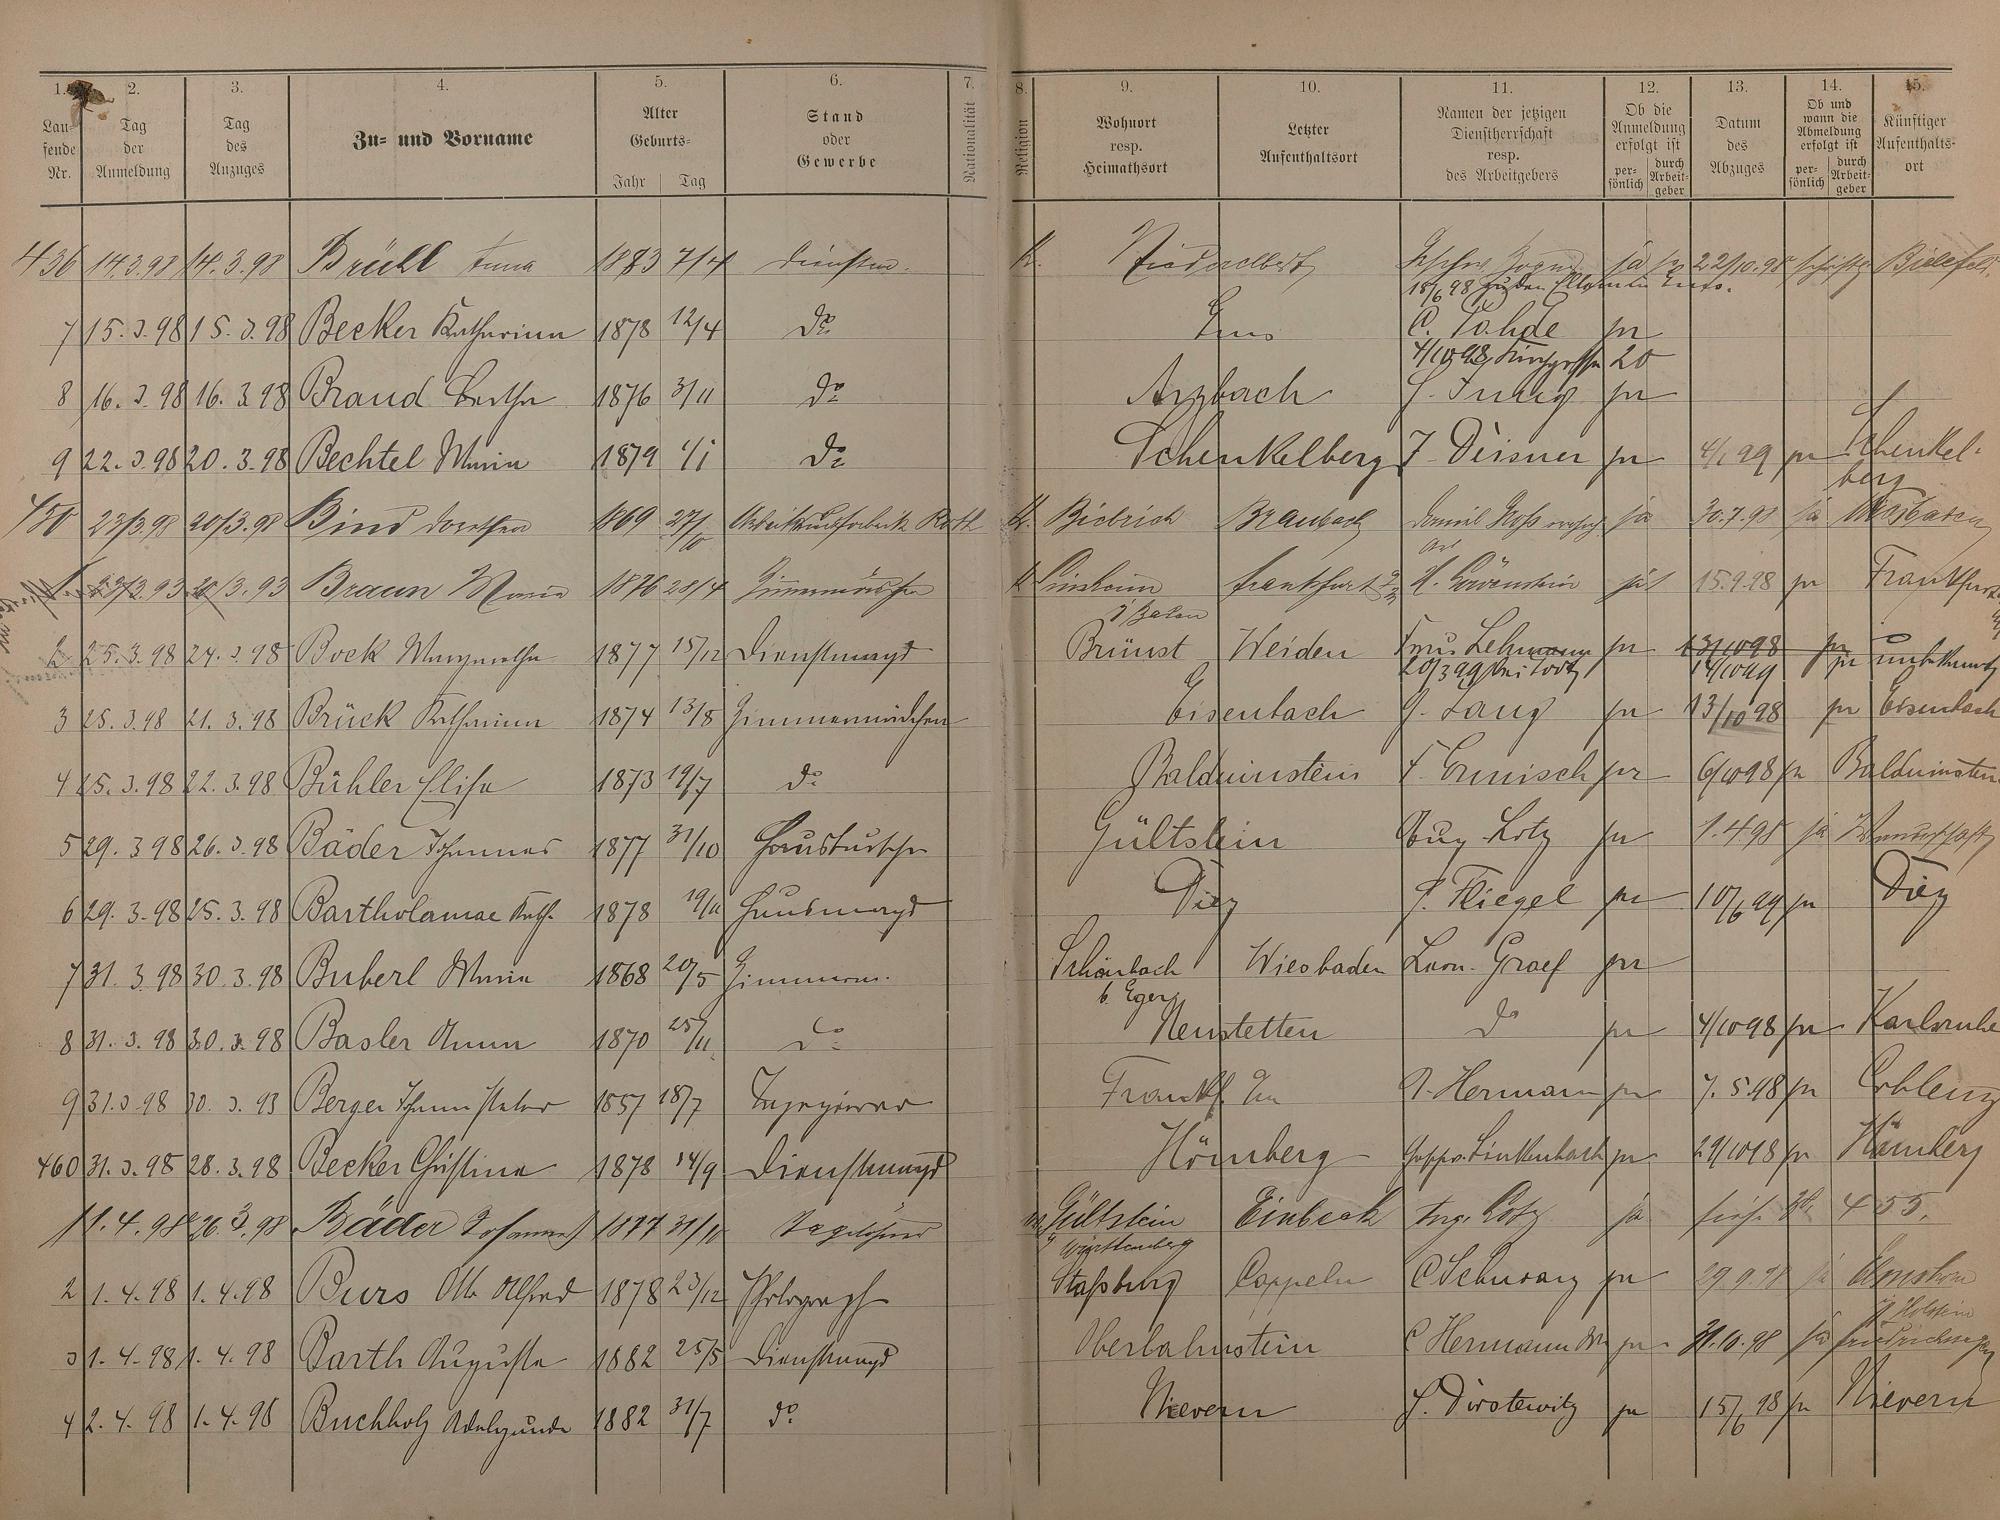 1. 2. 3. 4. 5. 6. 7. 8. 9. 10. 11. 12. 13. 14. 15.
Lau-
fende
Nr.
Tag
der
Anmeldung
Tag
des
Anzuges
Zu- und Vorname
Alter
Geburts-
Jahr Tag
Stand
oder
Gewerbe
Nationalität
Religion
Wohnort
resp.
Heimathsort
Letzter
Aufenthaltsort
Namen der jetzigen
Dienstherrschaft
resp.
des Arbeitgebers
Ob die
Anmeldung
erfolgt ist
per-
sönlich
durch
Arbeit-
geber
Datum
des
Abzuges
Ob und
wann die
Abmeldung
erfolgt ist
per-
sönlich
durch
Arbeit-
geber
Künftiger
Aufenthalts-
ort
436 14.3.98 14.3.98 Brühl Anna 1883 7/4 Dienstm. K. Niederelbert ja 22/10.98 Bielefeld.
18/6 98
7 15.3.98 15.3.98 Becker Katharina 1878 12/4 do Ems C. Rohde pr
4/10 98 20
8 16.3.98 16.3.98 Brand Bertha 1876 31/11 do Arzbach J. Jung pr
9 22.3.98 20.3.98 Bechtel Maria 1879 1/1 do Schenkelberg F. Deisner pr 4/1 99 pr Schenkel-
berg
450 23/3.98 20/3.98 Bind Dorothea 1869 27/10 Roth K. Biebrich Braubach Daniel ja 30.7.98 ja Wiesbaden
1 23/3.93 20/3.93 Braun Maria 1876 28/4 Zimmermädchen K Sinsheim Frankfurt H. Löwenstein ja 15.9.98 pr Frankfurt
i/ Baden
2 25.3.98 24.3.98 Bock Margaretha 1877 15/12 Dienstmagd Brünst Weiden Frau Lehmann pr 13/10 98 pr unbekannt
20/3 99 bei 14/10 99 pr
3 25.3.98 21.3.98 Brück Katharina 1874 13/8 Zimmermädchen Eisenbach J. Lang pr 13/10 98 pr Eisenbach
4 25.3.98 22.3.98 Bühler Elisa 1873 19/7 do Balduinstein F. Ermisch pr 6/10 98 pr Balduinstein
5 29.3.98 26.3.98 Bäder Johannes 1877 31/10 Hausbursche Gültstein Aug. Lotz pr 1.4.98 ja
6 29.3.98 25.3.98 Bartholamae Kath. 1878 19/11 Hausmagd Diez P. Fliegel pr 10/6 99 pr Diez
7 31.3.98 30.3.98 Buberl Maria 1868 20/5 Zimmerm. Schönbach Wiesbaden Leon. Graef pr
b. Eger
8 31.3.98 30.3.98 Basler Anna 1870 25/11 do Neustetten do pr 4/10 98 pr Karlsruhe
9 31.3.98 30.3.93 Berger Johann 1857 18/7 Frankf. Hermann pr 7.5.98 pr Coblenz
460 31.3.98 28.3.98 Becker Christina 1878 14/9 Dienstmagd Hömberg Linkenbach pr 29/10 98 pr Hömberg
1 1.4.98 26.3.98 Bäder Johannes 1877 31/10 Tagelöhner Gültstein Einbeck Aug. Lotz ja siehe No 455.
i/ Württemberg
2 1.4.98 1.4.98 Burs Otto Alfred 1878 23/12 Photograph Staßburg Cappeln C Schwarz pr 29.9.98 ja
i/ Holstein
3 1.4.98 1.4.98 Barth Augusta 1882 25/5 Dienstmagd Oberlahnstein C Hermann pr 31.10.98 ja Friedrichssegen
4 2.4.98 1.4.98 Buchholz Adelgunde 1882 31/7 do Nievern J. Dirstewitz pr 15/6 98 pr Nievern